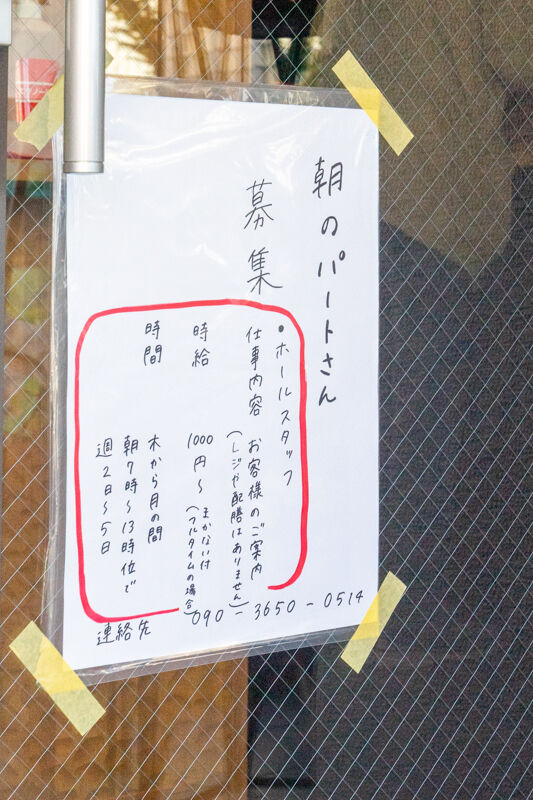 朝のパートさん
募集
●ホールスタッフ
仕事内容 お客様のご案内
(レジや配膳はありません)
時給 1000円〜 まかない付
(フルタイムの場合)
時間 木から月の間
朝7時〜13時位で
週2日〜5日
連絡先 090-3650-0514